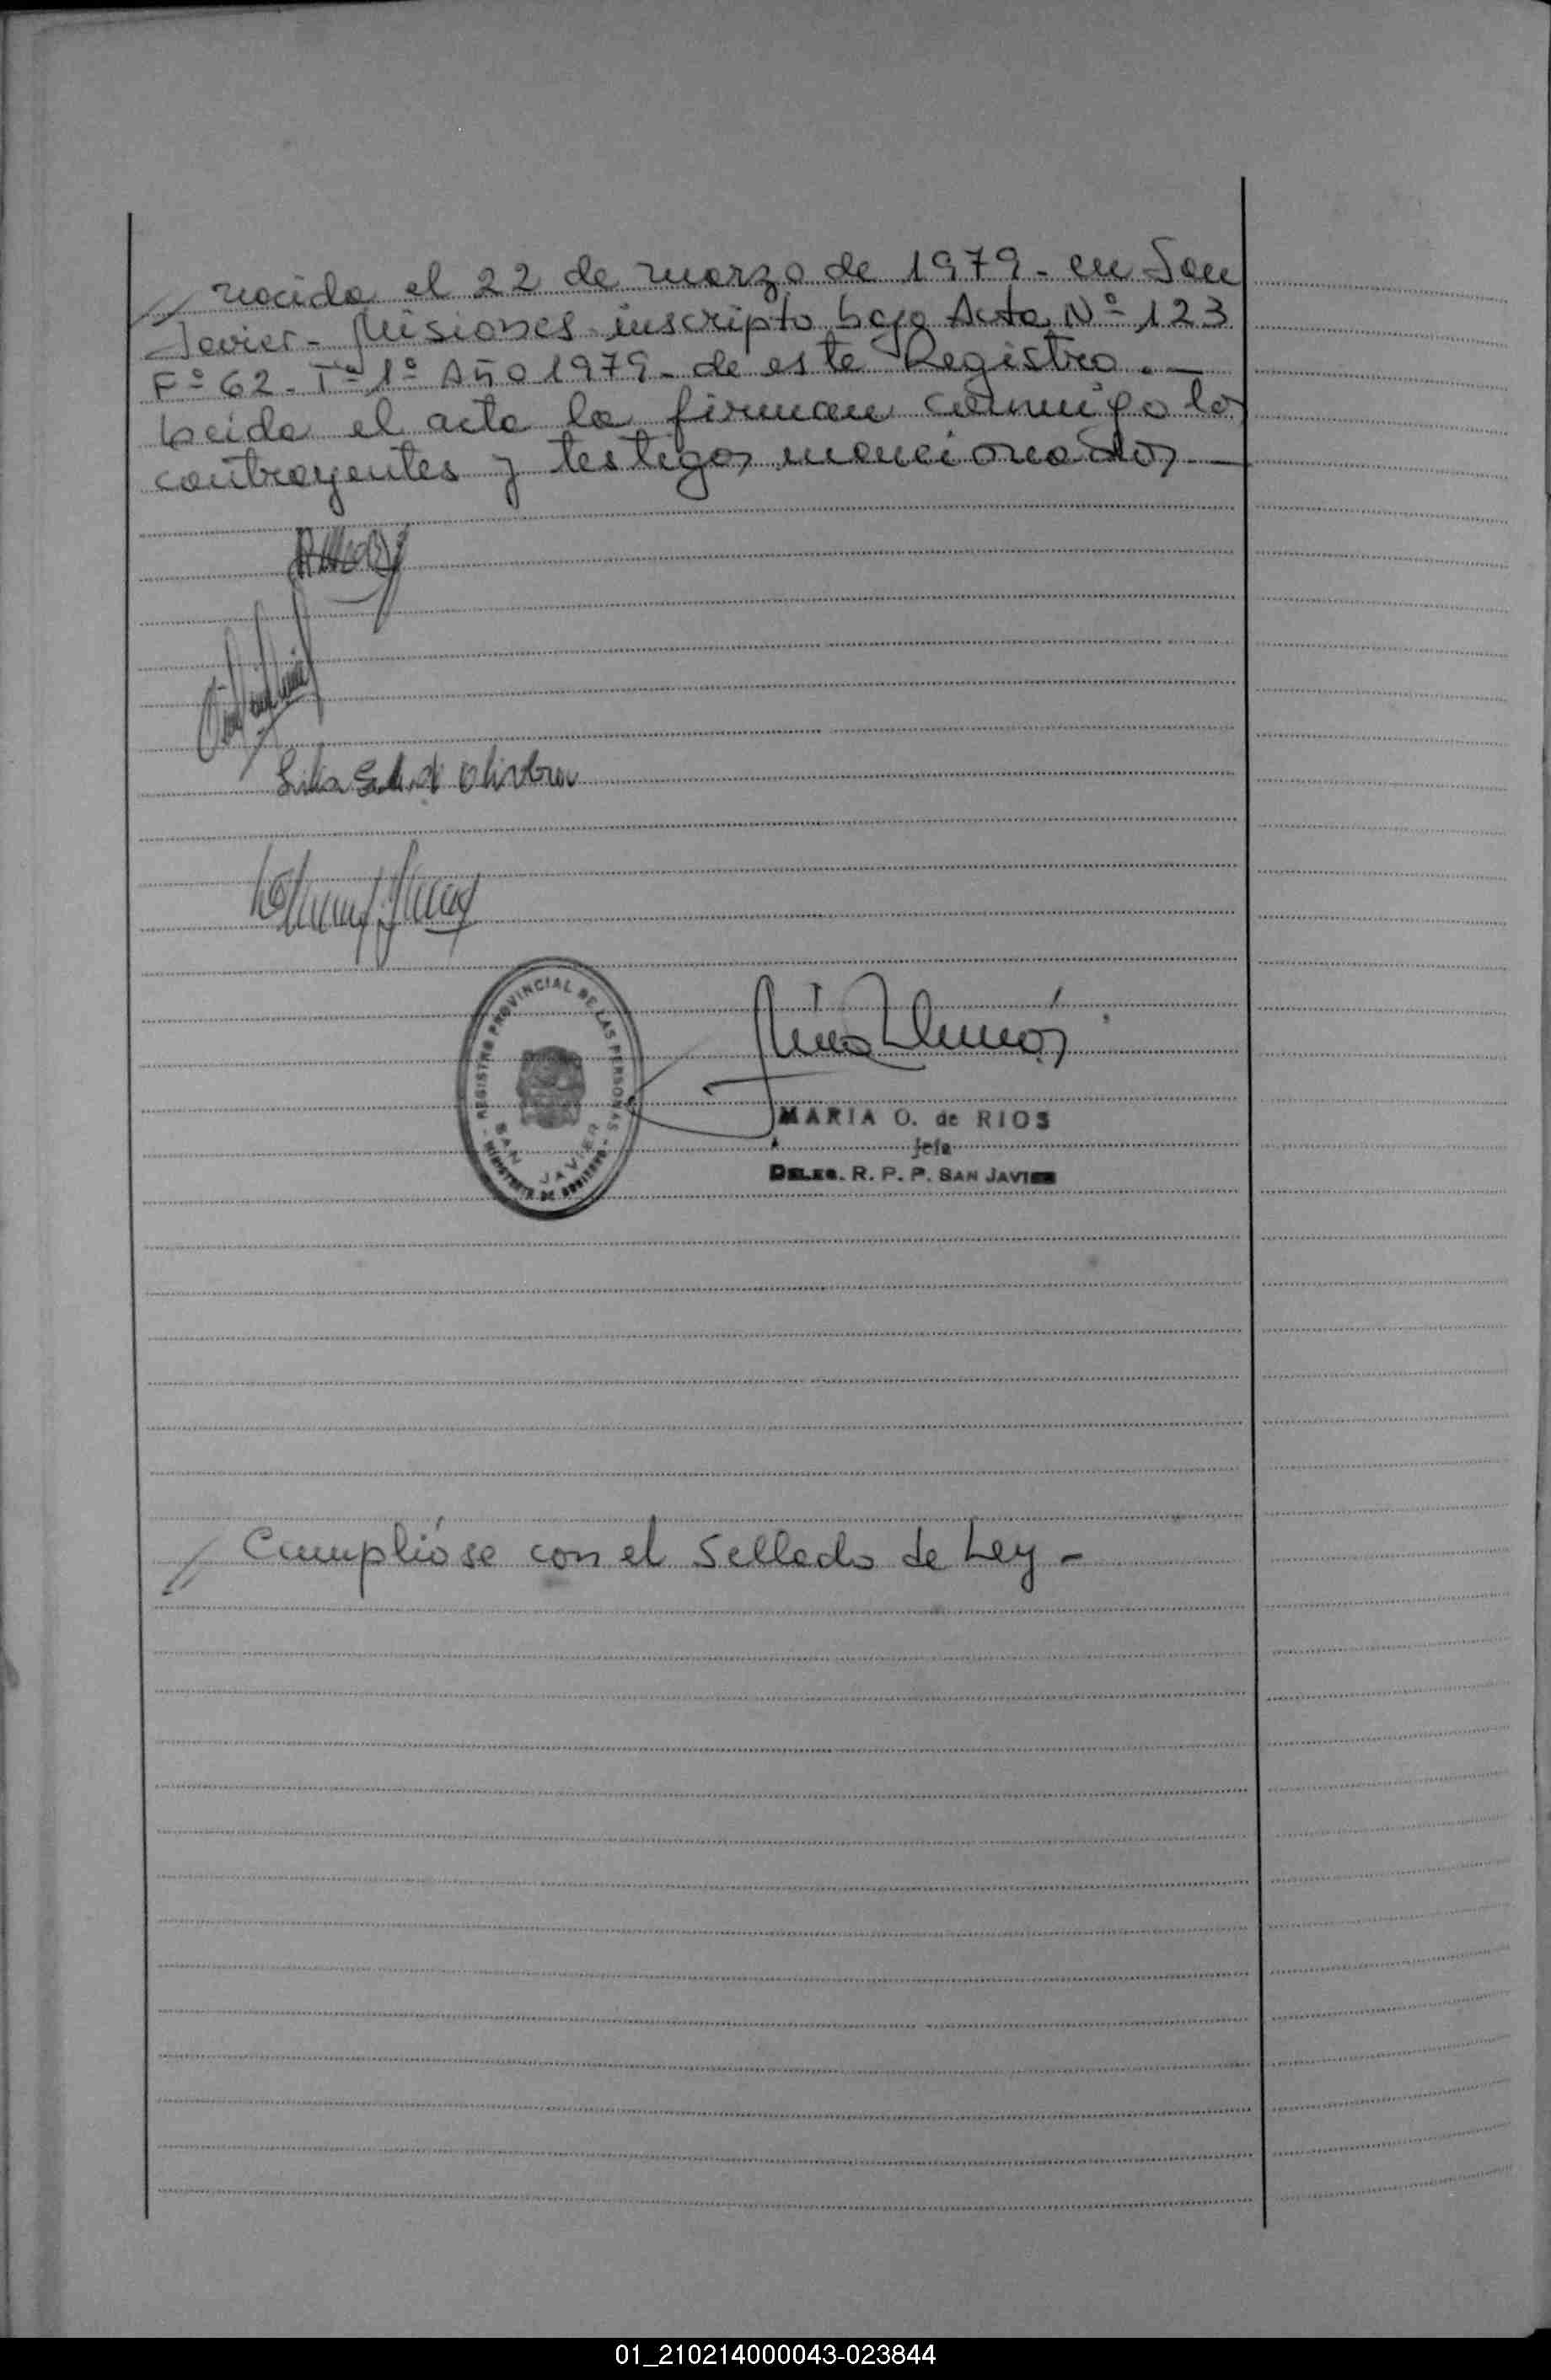 // nacido el 22 de marzo de 1979 - en San
Javier - Misiones inscripto bajo Acta Nº 123
Fº 62 - Tº 1º Año 1979 - de este Registro. —
Leida el acta la firman conmigo los
contrayentes y testigos mencionados —
REGISTRO PROVINCIAL DE LAS PERSONAS
SAN JAVIER
MINISTERIO DE GOBIERNO
MARIA O. de RIOS
Jefa
DELEG. R. P. P. SAN JAVIER
// Cumplióse con el Sellado de Ley -
01_210214000043-023844